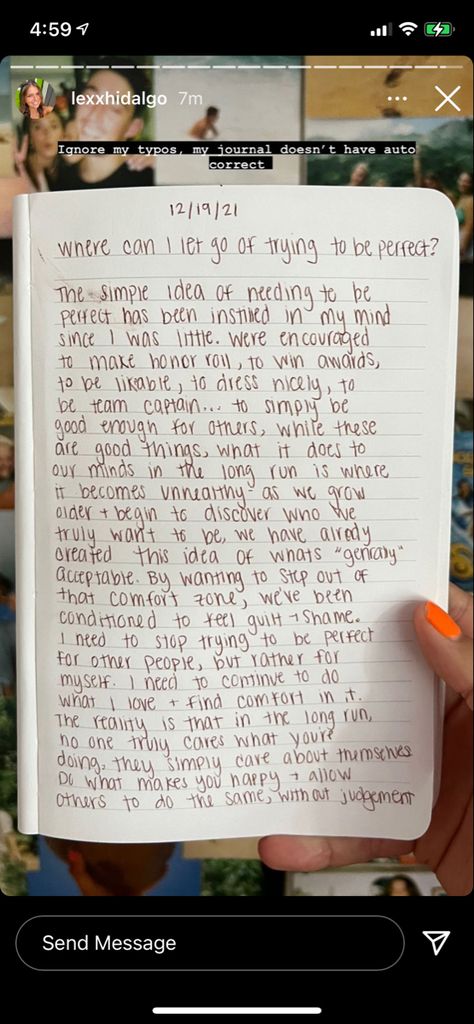 4:59
lexxhidalgo 7m
Ignore my typos, my journal doesn't have auto
correct
12/19/21
where can I let go of trying to be perfect?
The simple idea of needing to be
perfect has been instilled in my mind
since I was little. were encouraged
to make honor roll, to win awards,
to be likable, to dress nicely, to
be team captain... to simply be
good enough for others, while these
are good things, what it does to
our minds in the long run is where
it becomes unhealthy - as we grow
older + begin to discover who we
truly want to be, we have alredy
created this idea of whats "genrally"
acceptable. By wanting to step out of
that comfort zone, we've been
conditioned to feel guilt + shame.
I need to stop trying to be perfect
for other people, but rather for
myself. I need to continue to do
what I love + find comfort in it.
The reality is that in the long run,
no one truly cares what youre
doing. they simply care about themselves
Do what makes you happy + allow
others to do the same, without judgement
Send Message